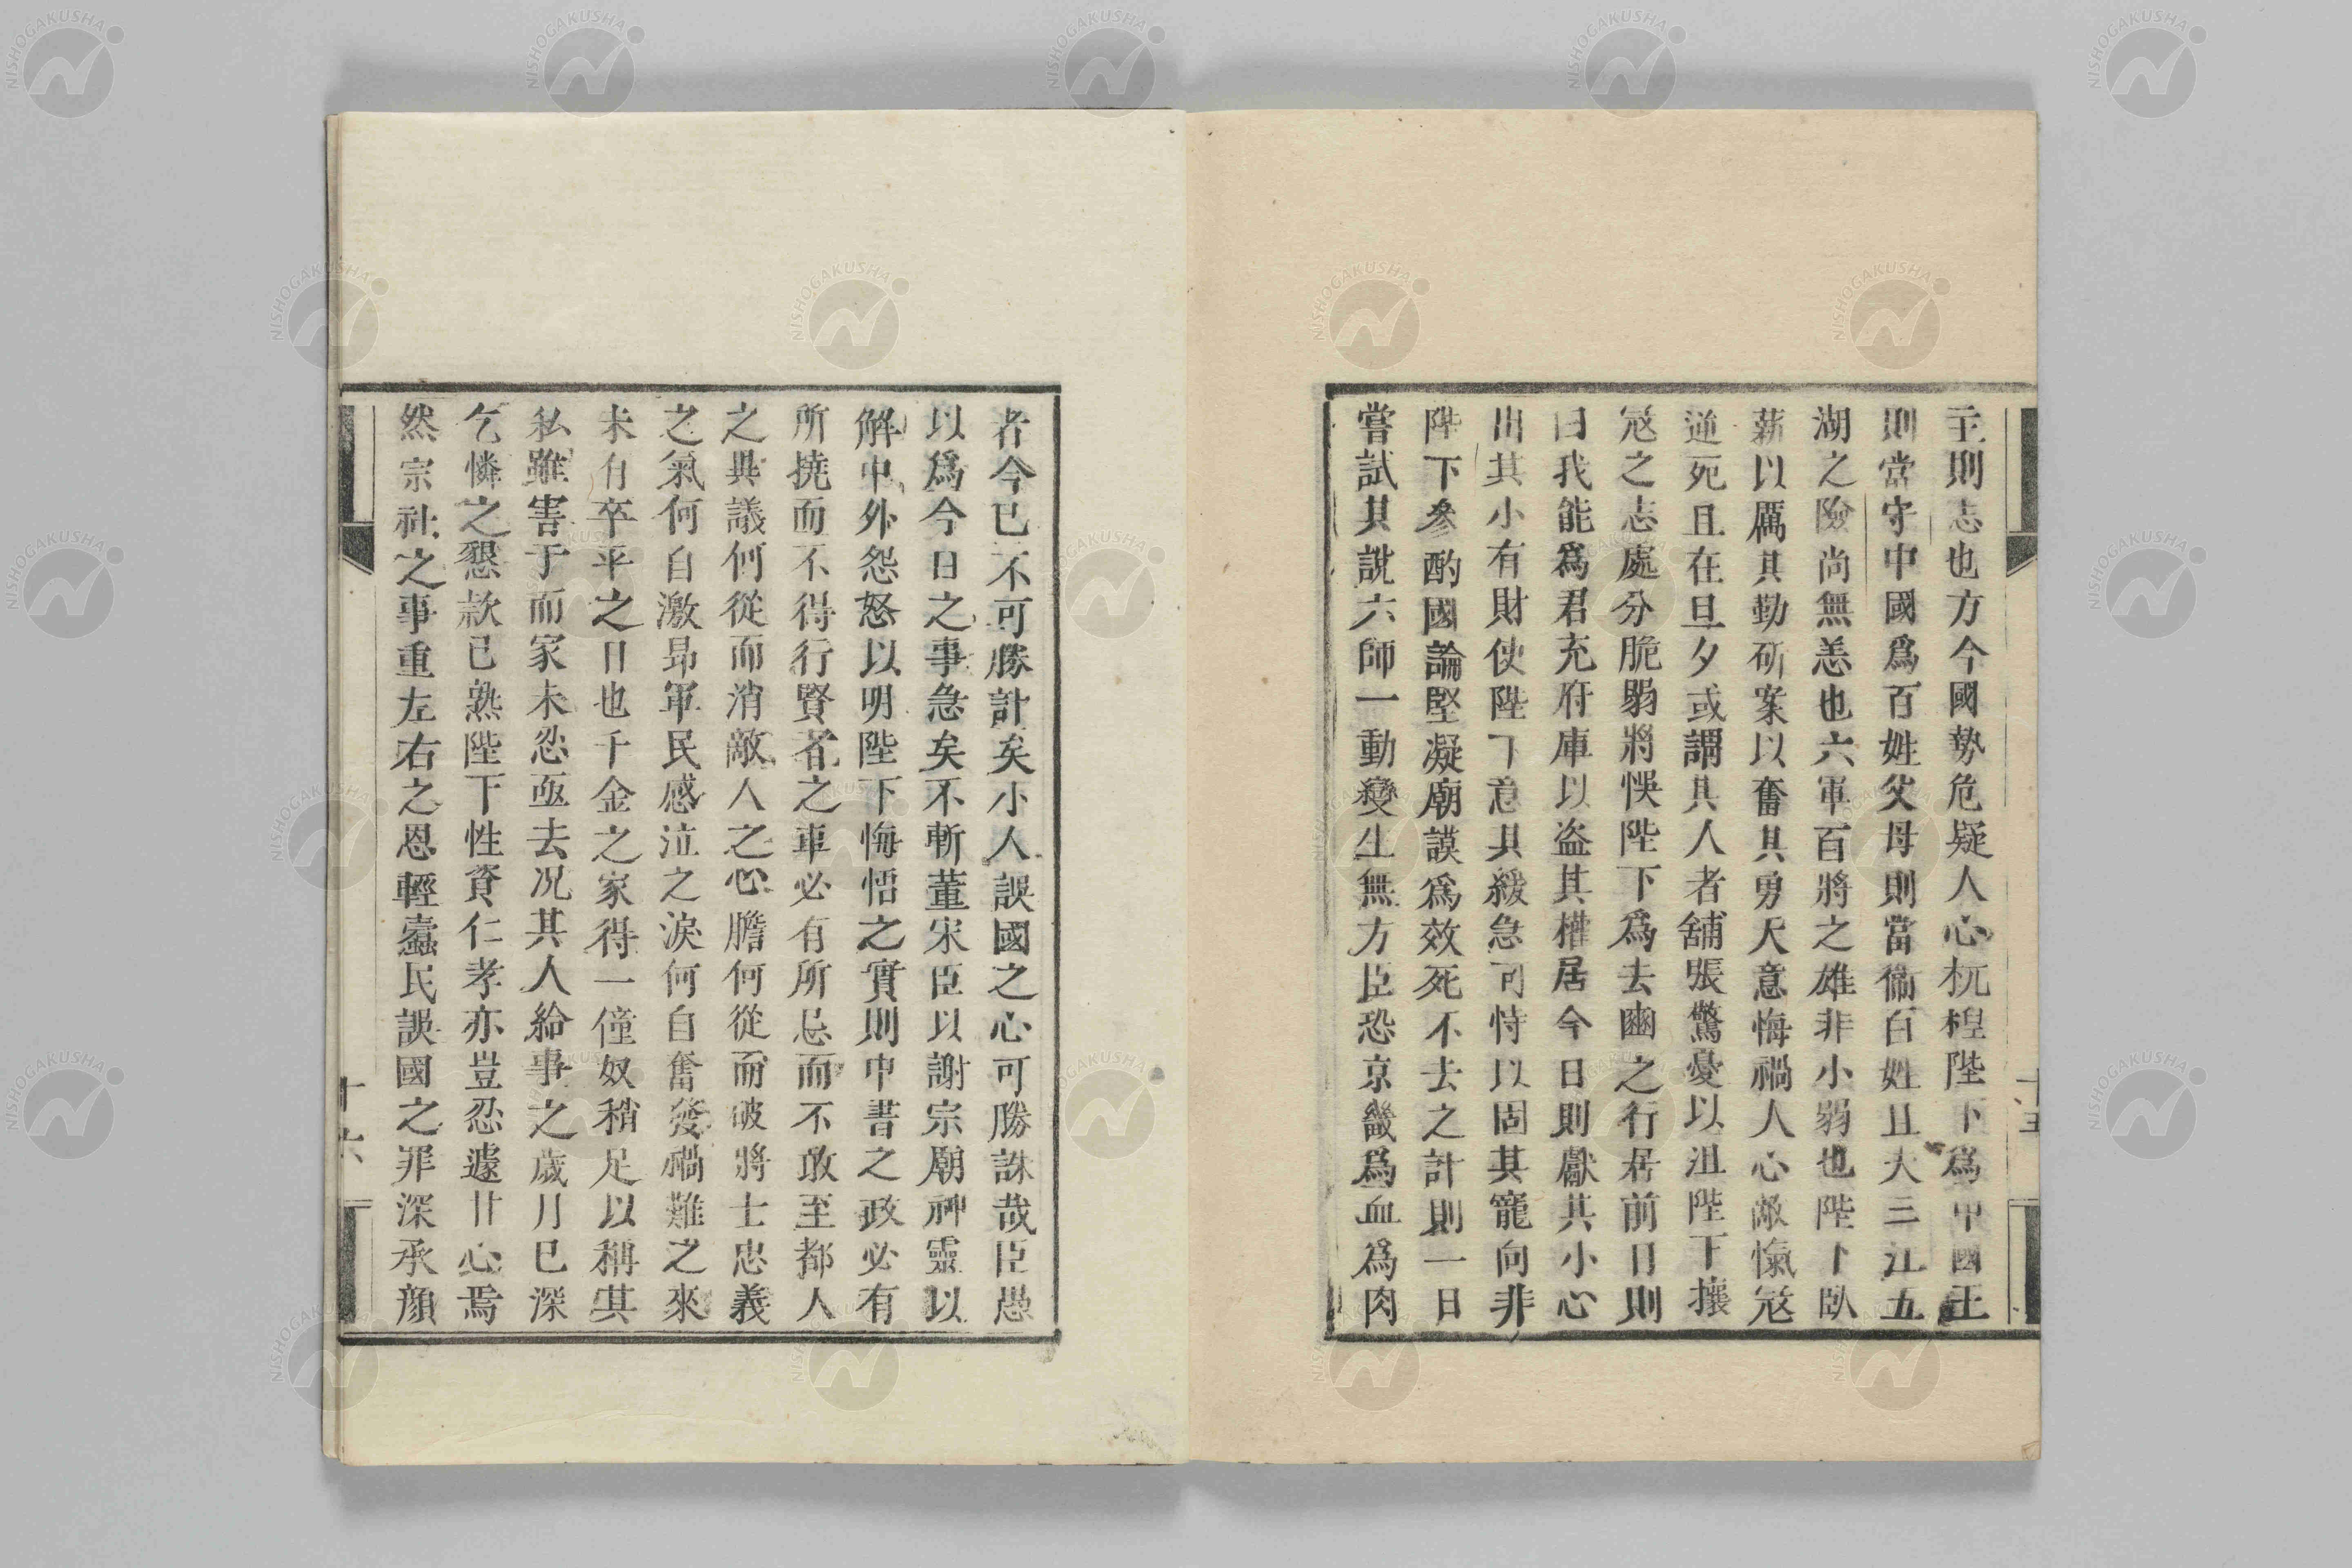 主則志也方今國勢危疑人心杌楻陛下爲中國主
則當守中國爲百姓父母則當衞百姓且夫三江五
湖之險尚無恙也六軍百將之雄非小弱也陛下臥
薪以厲其勤斫案以奮其勇天意悔禍人心敵愾寇
逆死且在旦夕或謂其人者舖張驚憂以沮陛下攘
寇之志處分脆弱將悞陛下爲去豳之行居前日則
曰我能爲君充府庫以盗其權居今日則獻其小心
出其小有財使陛下意其緩急可恃以固其寵向非
陛下參酌國論堅凝廟謨爲效死不去之計則一日
嘗試其說六師一動變生無方臣恐京畿爲血爲肉
者今已不可勝計矣小人誤國之心可勝誅哉臣愚
以爲今日之事急矣不斬董宋臣以謝宗廟神靈以
解中外怨怒以明陛下悔悟之實則中書之政必有
所撓而不得行賢者之車必有所忌而不敢至都人
之異議何從而消敵人之心膽何從而破將士忠義
之氣何自激昂軍民感泣之淚何自奮發禍難之來
未有卒平之日也千金之家得一僮奴稍足以稱其
私雖害于而家未忍亟去况其人給事之歲月已深
乞憐之懇款已熟陛下性資仁孝亦豈忍遽甘心焉
然宗社之事重左右之恩輕蠹民誤國之罪深承顔
十五
十六
NISHOGAKUSHA